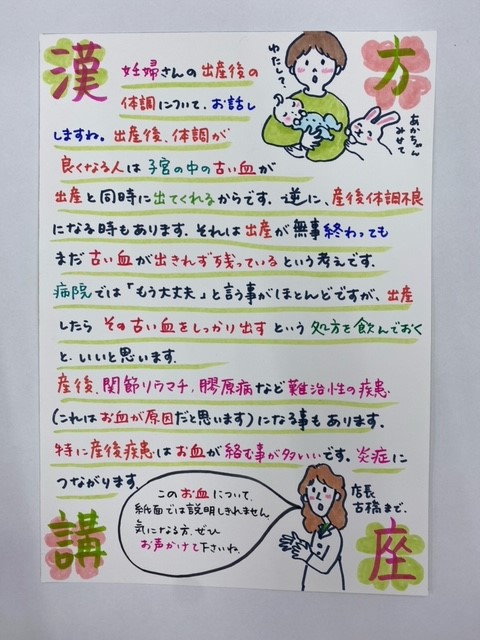 漢方
講座
妊婦さんの出産後の
体調について、お話し
しますね。出産後、体調が
良くなる人は子宮の中の古い血が
出産と同時に出てくれるからです。逆に、産後体調不良
になる時もあります。それは出産が無事終わっても
まだ古い血が出きれず残っているという考えです。
病院では「もう大丈夫」と言う事がほとんどですが、出産
したらその古い血をしっかり出すという処方を飲んでおく
と、いいと思います。
産後、関節リウマチ、膠原病など難治性の疾患
(これはお血が原因だと思います)になる事もあります。
特に産後疾患はお血が絡む事が多いです。炎症に
つながります。
わたして〜
あかちゃん
みせて
このお血について、
紙面では説明しきれません。
気になる方、ぜひ
お声かけて下さいね。
店長
古橋まで。